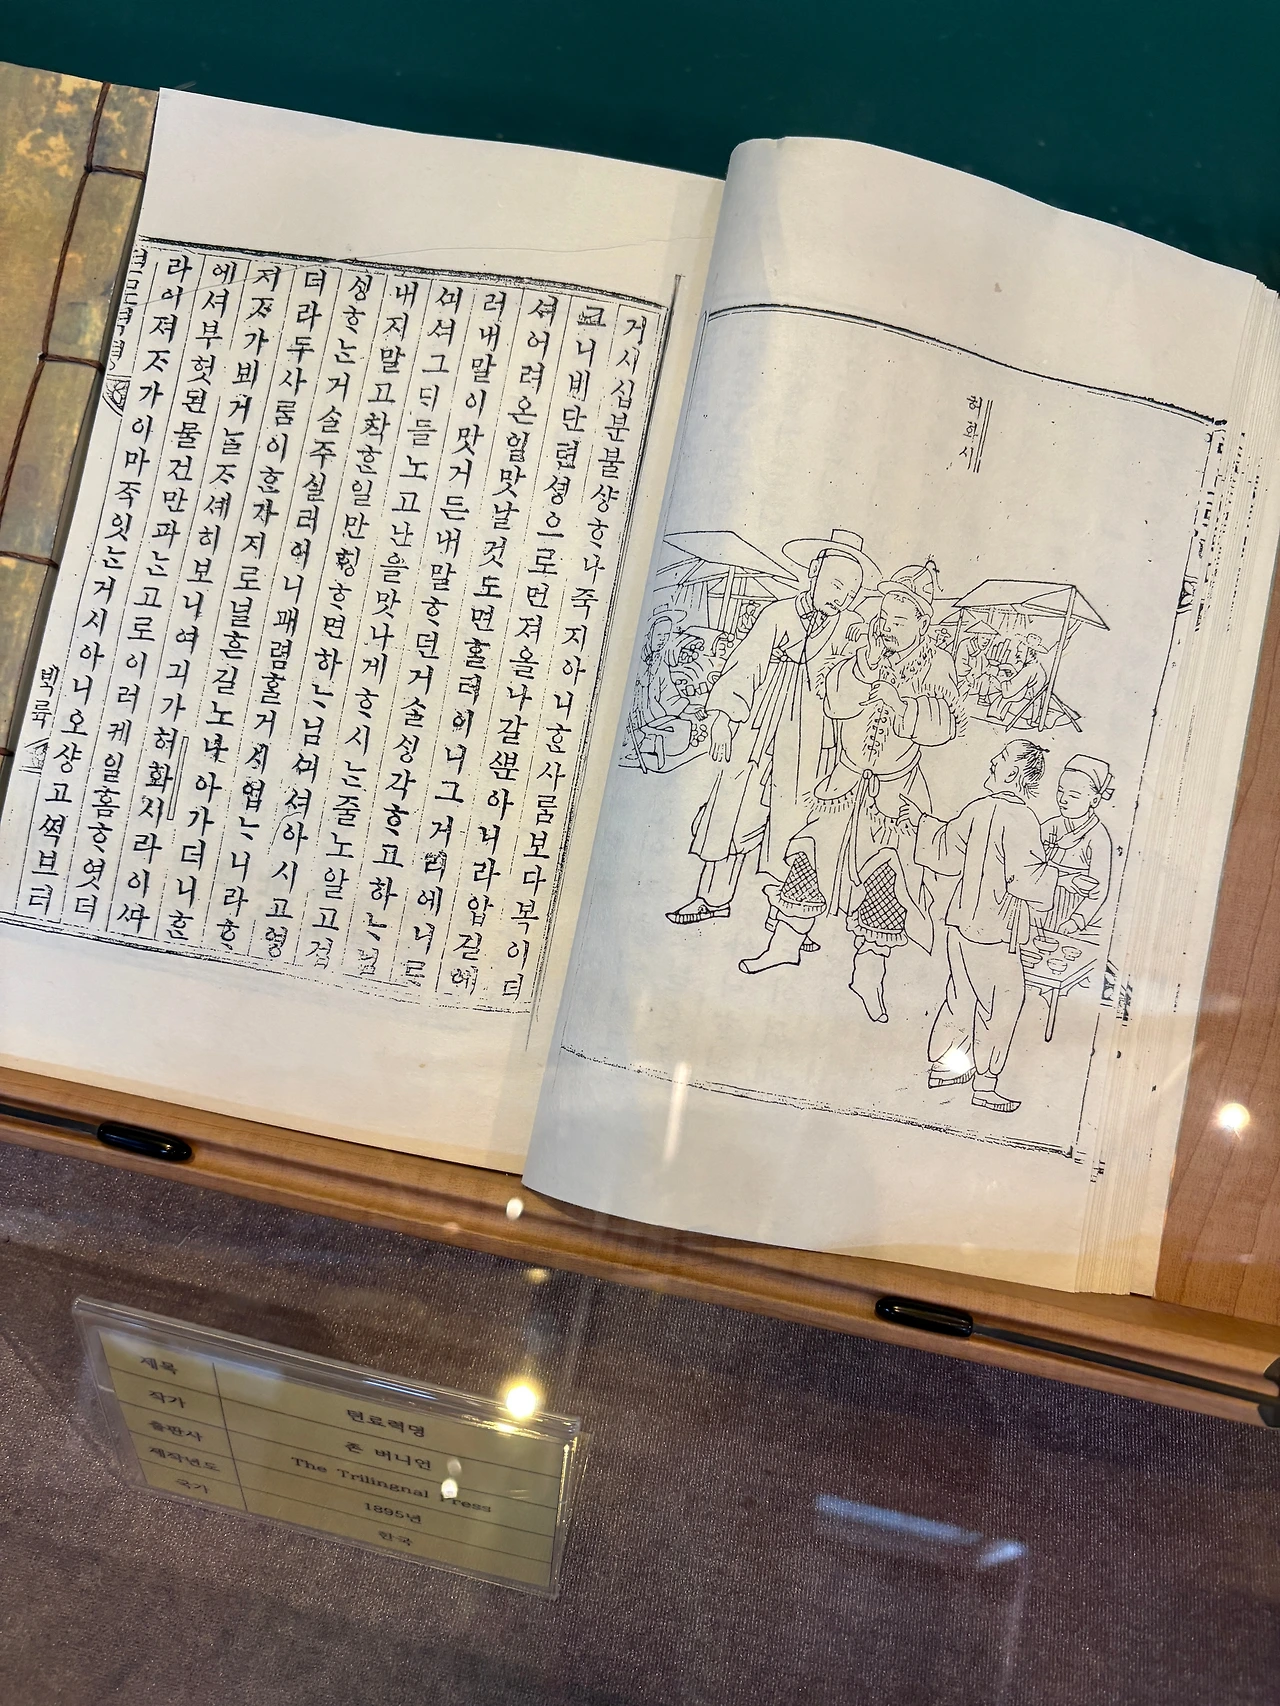 거시십분불샹ᄒᆞ나죽지아니ᄒᆞᆫ사ᄅᆞᆷ보다복이더
니비단텬셩으로먼져올나갈ᄲᅮᆫ아니라압길에
셔어려온일맛날것도면ᄒᆞᆯ터이니그거리에니르
러내말이맛거든내말ᄒᆞ던거ᄉᆞᆯᄉᆡᆼ각ᄒᆞ고하ᄂᆞ님
ᄭᅴ셔그ᄃᆡ들노고난을맛나게ᄒᆞ시ᄂᆞᆫ줄노알고겁
내지말고착ᄒᆞᆫ일만ᄒᆡᆼᄒᆞ면하ᄂᆞ님ᄭᅴ셔아시고영
ᄉᆡᆼᄒᆞᄂᆞᆫ거ᄉᆞᆯ주실터이니패렴ᄒᆞᆯ거시업ᄂᆞ니라ᄒᆞ
더라두사ᄅᆞᆷ이ᄒᆞᆫ가지로널흔길노나아가더니ᄒᆞᆫ
저ᄌᆞ가뵈거ᄂᆞᆯᄌᆞ셰히보니여긔가허화시라이ᄯᅡ
에셔부헛된물건만파ᄂᆞᆫ고로이러케일홈ᄒᆞ엿더
라이져ᄌᆞ가이마ᄌᆞᆨ잇ᄂᆞᆫ거시아니오샹고ᄶᅥᆨ브터
텬로력뎡
ᄇᆡᆨ륙
허화시
제목 텬료력뎡
작가 존 버니언
출판사 The Trilingnal Press
제작년도 1895년
국가 한국